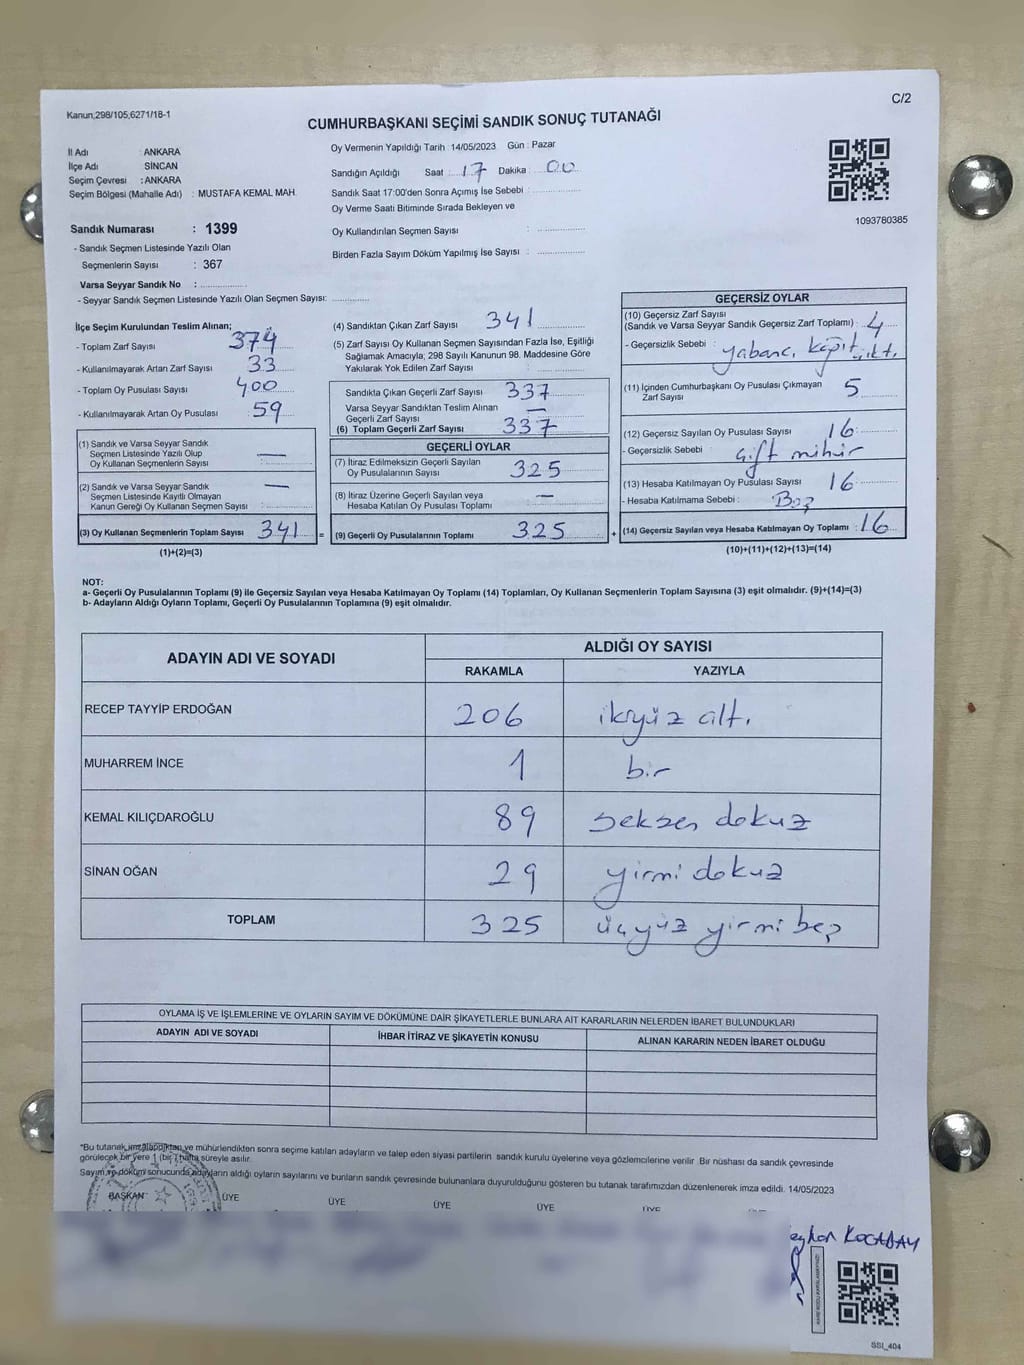 Kanun,298/105,6271/18-1
C/2
CUMHURBAŞKANI SEÇİMİ SANDIK SONUÇ TUTANAĞI
İl Adı : ANKARA
İlçe Adı : SİNCAN
Seçim Çevresi : ANKARA
Seçim Bölgesi (Mahalle Adı) : MUSTAFA KEMAL MAH.
Oy Vermenin Yapıldığı Tarih : 14/05/2023 Gün : Pazar
Sandığın Açıldığı Saat : 17 Dakika : 00
Sandık Saat 17:00'den Sonra Açımış İse Sebebi :
Oy Verme Saati Bitiminde Sırada Bekleyen ve
Oy Kullandırılan Seçmen Sayısı :
Birden Fazla Sayım Döküm Yapılmış İse Sayısı :
1093780385
Sandık Numarası : 1399
- Sandık Seçmen Listesinde Yazılı Olan
Seçmenlerin Sayısı : 367
Varsa Seyyar Sandık No :
- Seyyar Sandık Seçmen Listesinde Yazılı Olan Seçmen Sayısı:
İlçe Seçim Kurulundan Teslim Alınan;
- Toplam Zarf Sayısı 374
- Kullanılmayarak Artan Zarf Sayısı 33
- Toplam Oy Pusulası Sayısı 400
- Kullanılmayarak Artan Oy Pusulası 59
(1) Sandık ve Varsa Seyyar Sandık
Seçmen Listesinde Yazılı Olup
Oy Kullanan Seçmenlerin Sayısı : —
(2) Sandık ve Varsa Seyyar Sandık
Seçmen Listesinde Kayıtlı Olmayan
Kanun Gereği Oy Kullanan Seçmen Sayısı : —
(3) Oy Kullanan Seçmenlerin Toplam Sayısı 341 =
(1)+(2)=(3)
(4) Sandıktan Çıkan Zarf Sayısı 341
(5) Zarf Sayısı Oy Kullanan Seçmen Sayısından Fazla İse, Eşitliği
Sağlamak Amacıyla, 298 Sayılı Kanunun 98. Maddesine Göre
Yakılarak Yok Edilen Zarf Sayısı :
Sandıkta Çıkan Geçerli Zarf Sayısı 337
Varsa Seyyar Sandıktan Teslim Alınan
Geçerli Zarf Sayısı —
(6) Toplam Geçerli Zarf Sayısı 337
GEÇERLİ OYLAR
(7) İtiraz Edilmeksizin Geçerli Sayılan
Oy Pusulalarının Sayısı 325
(8) İtiraz Üzerine Geçerli Sayılan veya
Hesaba Katılan Oy Pusulası Toplamı —
(9) Geçerli Oy Pusulalarının Toplamı 325 +
GEÇERSİZ OYLAR
(10) Geçersiz Zarf Sayısı
(Sandık ve Varsa Seyyar Sandık Geçersiz Zarf Toplamı) : 4
- Geçersizlik Sebebi : yabancı kağıt çıktı
(11) İçinden Cumhurbaşkanı Oy Pusulası Çıkmayan
Zarf Sayısı 5
(12) Geçersiz Sayılan Oy Pusulası Sayısı 16
- Geçersizlik Sebebi : Çift mühür
(13) Hesaba Katılmayan Oy Pusulası Sayısı 16
- Hesaba Katılmama Sebebi : Boş
(14) Geçersiz Sayılan veya Hesaba Katılmayan Oy Toplamı : 16
(10)+(11)+(12)+(13)=(14)
NOT:
a- Geçerli Oy Pusulalarının Toplamı (9) ile Geçersiz Sayılan veya Hesaba Katılmayan Oy Toplamı (14) Toplamları, Oy Kullanan Seçmenlerin Toplam Sayısına (3) eşit olmalıdır. (9)+(14)=(3)
b- Adayların Aldığı Oyların Toplamı, Geçerli Oy Pusulalarının Toplamına (9) eşit olmalıdır.
ADAYIN ADI VE SOYADI
ALDIĞI OY SAYISI
RAKAMLA YAZIYLA
RECEP TAYYİP ERDOĞAN 206 ikiyüz altı
MUHARREM İNCE 1 bir
KEMAL KILIÇDAROĞLU 89 seksen dokuz
SİNAN OĞAN 29 yirmi dokuz
TOPLAM 325 üçyüz yirmi beş
OYLAMA İŞ VE İŞLEMLERİNE VE OYLARIN SAYIM VE DÖKÜMÜNE DAİR ŞİKAYETLERLE BUNLARA AİT KARARLARIN NELERDEN İBARET BULUNDUKLARI
ADAYIN ADI VE SOYADI İHBAR İTİRAZ VE ŞİKAYETİN KONUSU ALINAN KARARIN NEDEN İBARET OLDUĞU
*Bu tutanak imzalandıktan ve mühürlendikten sonra seçime katılan adayların ve talep eden siyasi partilerin sandık kurulu üyelerine veya gözlemcilerine verilir. Bir nüshası da sandık çevresinde
görülecek bir yere 1 (bir) hafta süreyle asılır.
Sayım ve döküm sonucunda adayların aldığı oyların sayılarını ve bunların sandık çevresinde bulunanlara duyurulduğunu gösteren bu tutanak tarafımızdan düzenlenerek imza edildi. 14/05/2023
BAŞKAN ÜYE ÜYE ÜYE ÜYE ÜYE
KOCABAY
SSI_404